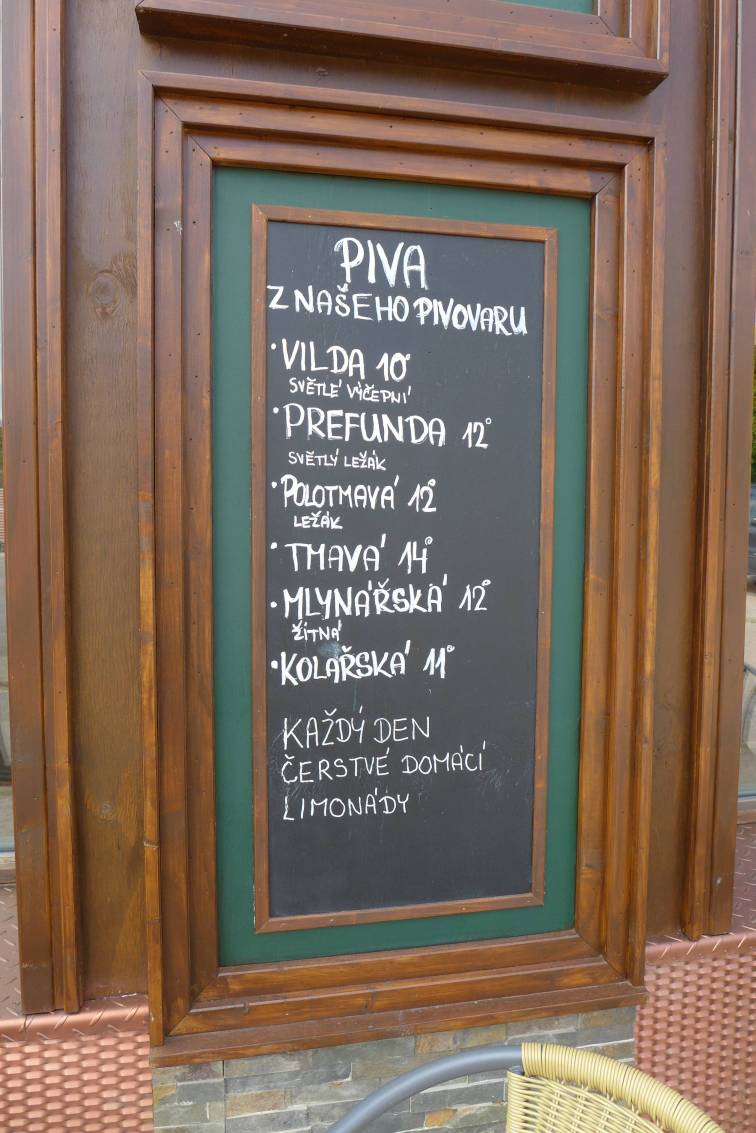 PIVA
Z NAŠEHO PIVOVARU
• VILDA 10°
SVĚTLÉ VÝČEPNÍ
• PREFUNDA 12°
SVĚTLÝ LEŽÁK
• POLOTMAVÁ 12°
LEŽÁK
• TMAVÁ 14°
• MLYNÁŘSKÁ 12°
ŽITNÁ
• KOLAŘSKÁ 11°
KAŽDÝ DEN
ČERSTVÉ DOMÁCÍ
LIMONÁDY